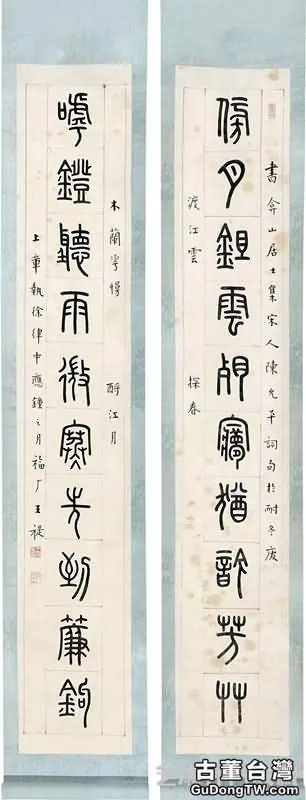 書弇山居士集宋人陳允平詞句於耐冬廎
傍月鉏雲夢猶芳艸
渡江雲 探春
木蘭慢 酹江月
嘑鐙聽雨微寒先到簾鉤
上章執徐律中應鍾之月福厂王禔
古董台灣
GuDongTW.com